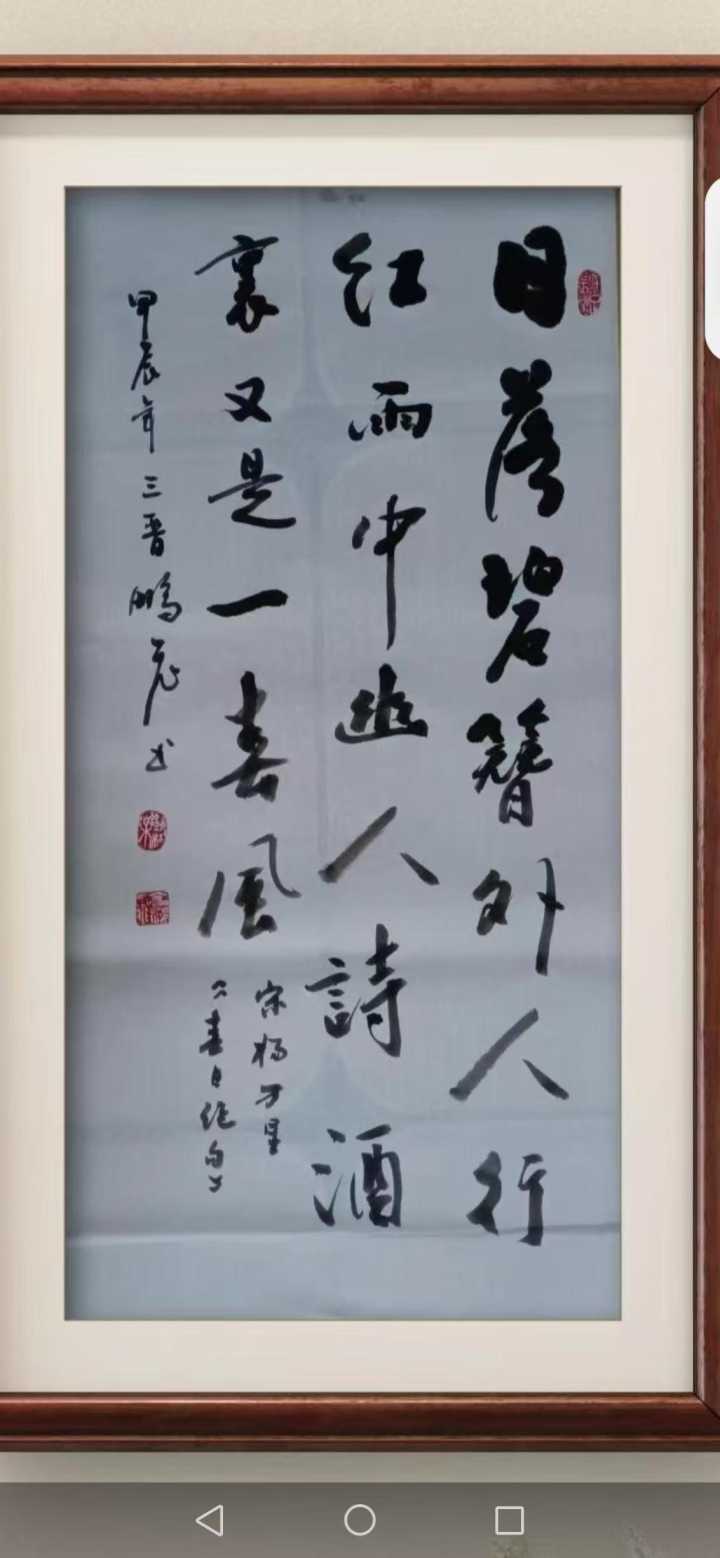 日落碧簪外人行
红雨中幽人詩酒
裏又是一春風
宋楊万里
《春日绝句》
甲辰年三晋鵬飛书